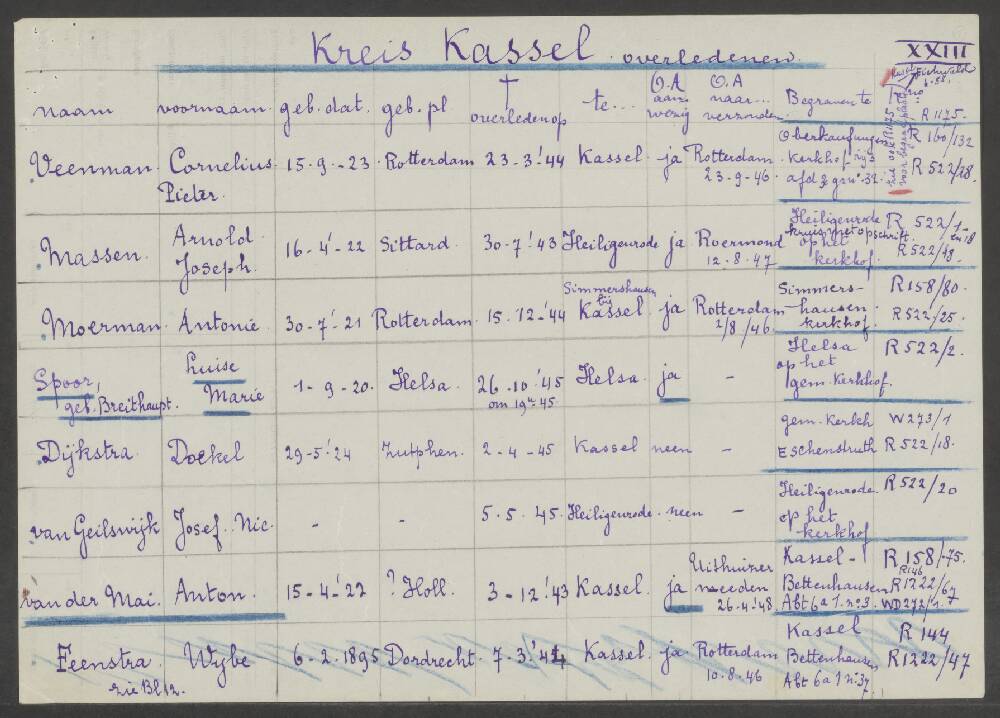 Kreis Kassel overledenen.
XXIII
naam voornaam. geb. dat. geb. pl † overleden op te... O.A aanwezig O.A naar... verzonden Begraven te R 1175.
Veenman. Cornelius Pieter. 15-9-23 Rotterdam 23-3-'44 Kassel ja Rotterdam 23-9-46. Oberkaufungen Kerkhof afd 3 gr. nr. 32. R 160/132 R 522/28.
Massen. Arnold Joseph. 16-4-'22 Sittard. 30-7-'43 Heiligenrode ja Roermond 12-8-47 Heiligenrode kruis met opschrift. op het kerkhof. R 522/1- en 18 R 522/19.
Moerman. Antonie 30-7-'21 Rotterdam 15-12-'44 Simmershausen bij Kassel ja Rotterdam 2/8/46. Simmers-hausen-kerkhof. R 158/80. R 522/25.
Spoor, geb. Breithaupt. Luise Marie 1-9-20. Helsa. 26-10-'45 om 19u-45 Helsa. ja - Helsa op het gem. Kerkhof. R 522/2.
Dijkstra Doekel 29-5-'24 Zutphen. 2-4-45 Kassel neen - gem. Kerkh Eschenstruth W 273/1 R 522/18.
van Geilswijk Josef. Nic. - - 5.5.45. Heiligenrode. neen - Heiligenrode. op het kerkhof R 522/20
van der Mai. Anton. 15-4-'22 ? Holl. 3-12-'43 Kassel. ja Uithuizermeeden 26-4-'48 Kassel-Bettenhausen Abt 6 a 1. no 3. R 158/75. R 146 R 1222/67 WD 272/1.
Feenstra. zie Bl 12. Wybe 6-2-1895 Dordrecht. 7-3-'44 Kassel. ja Rotterdam 10-8-46 Kassel Bettenhausen Abt 6 a 1 no 37 R 144 R 1222/47